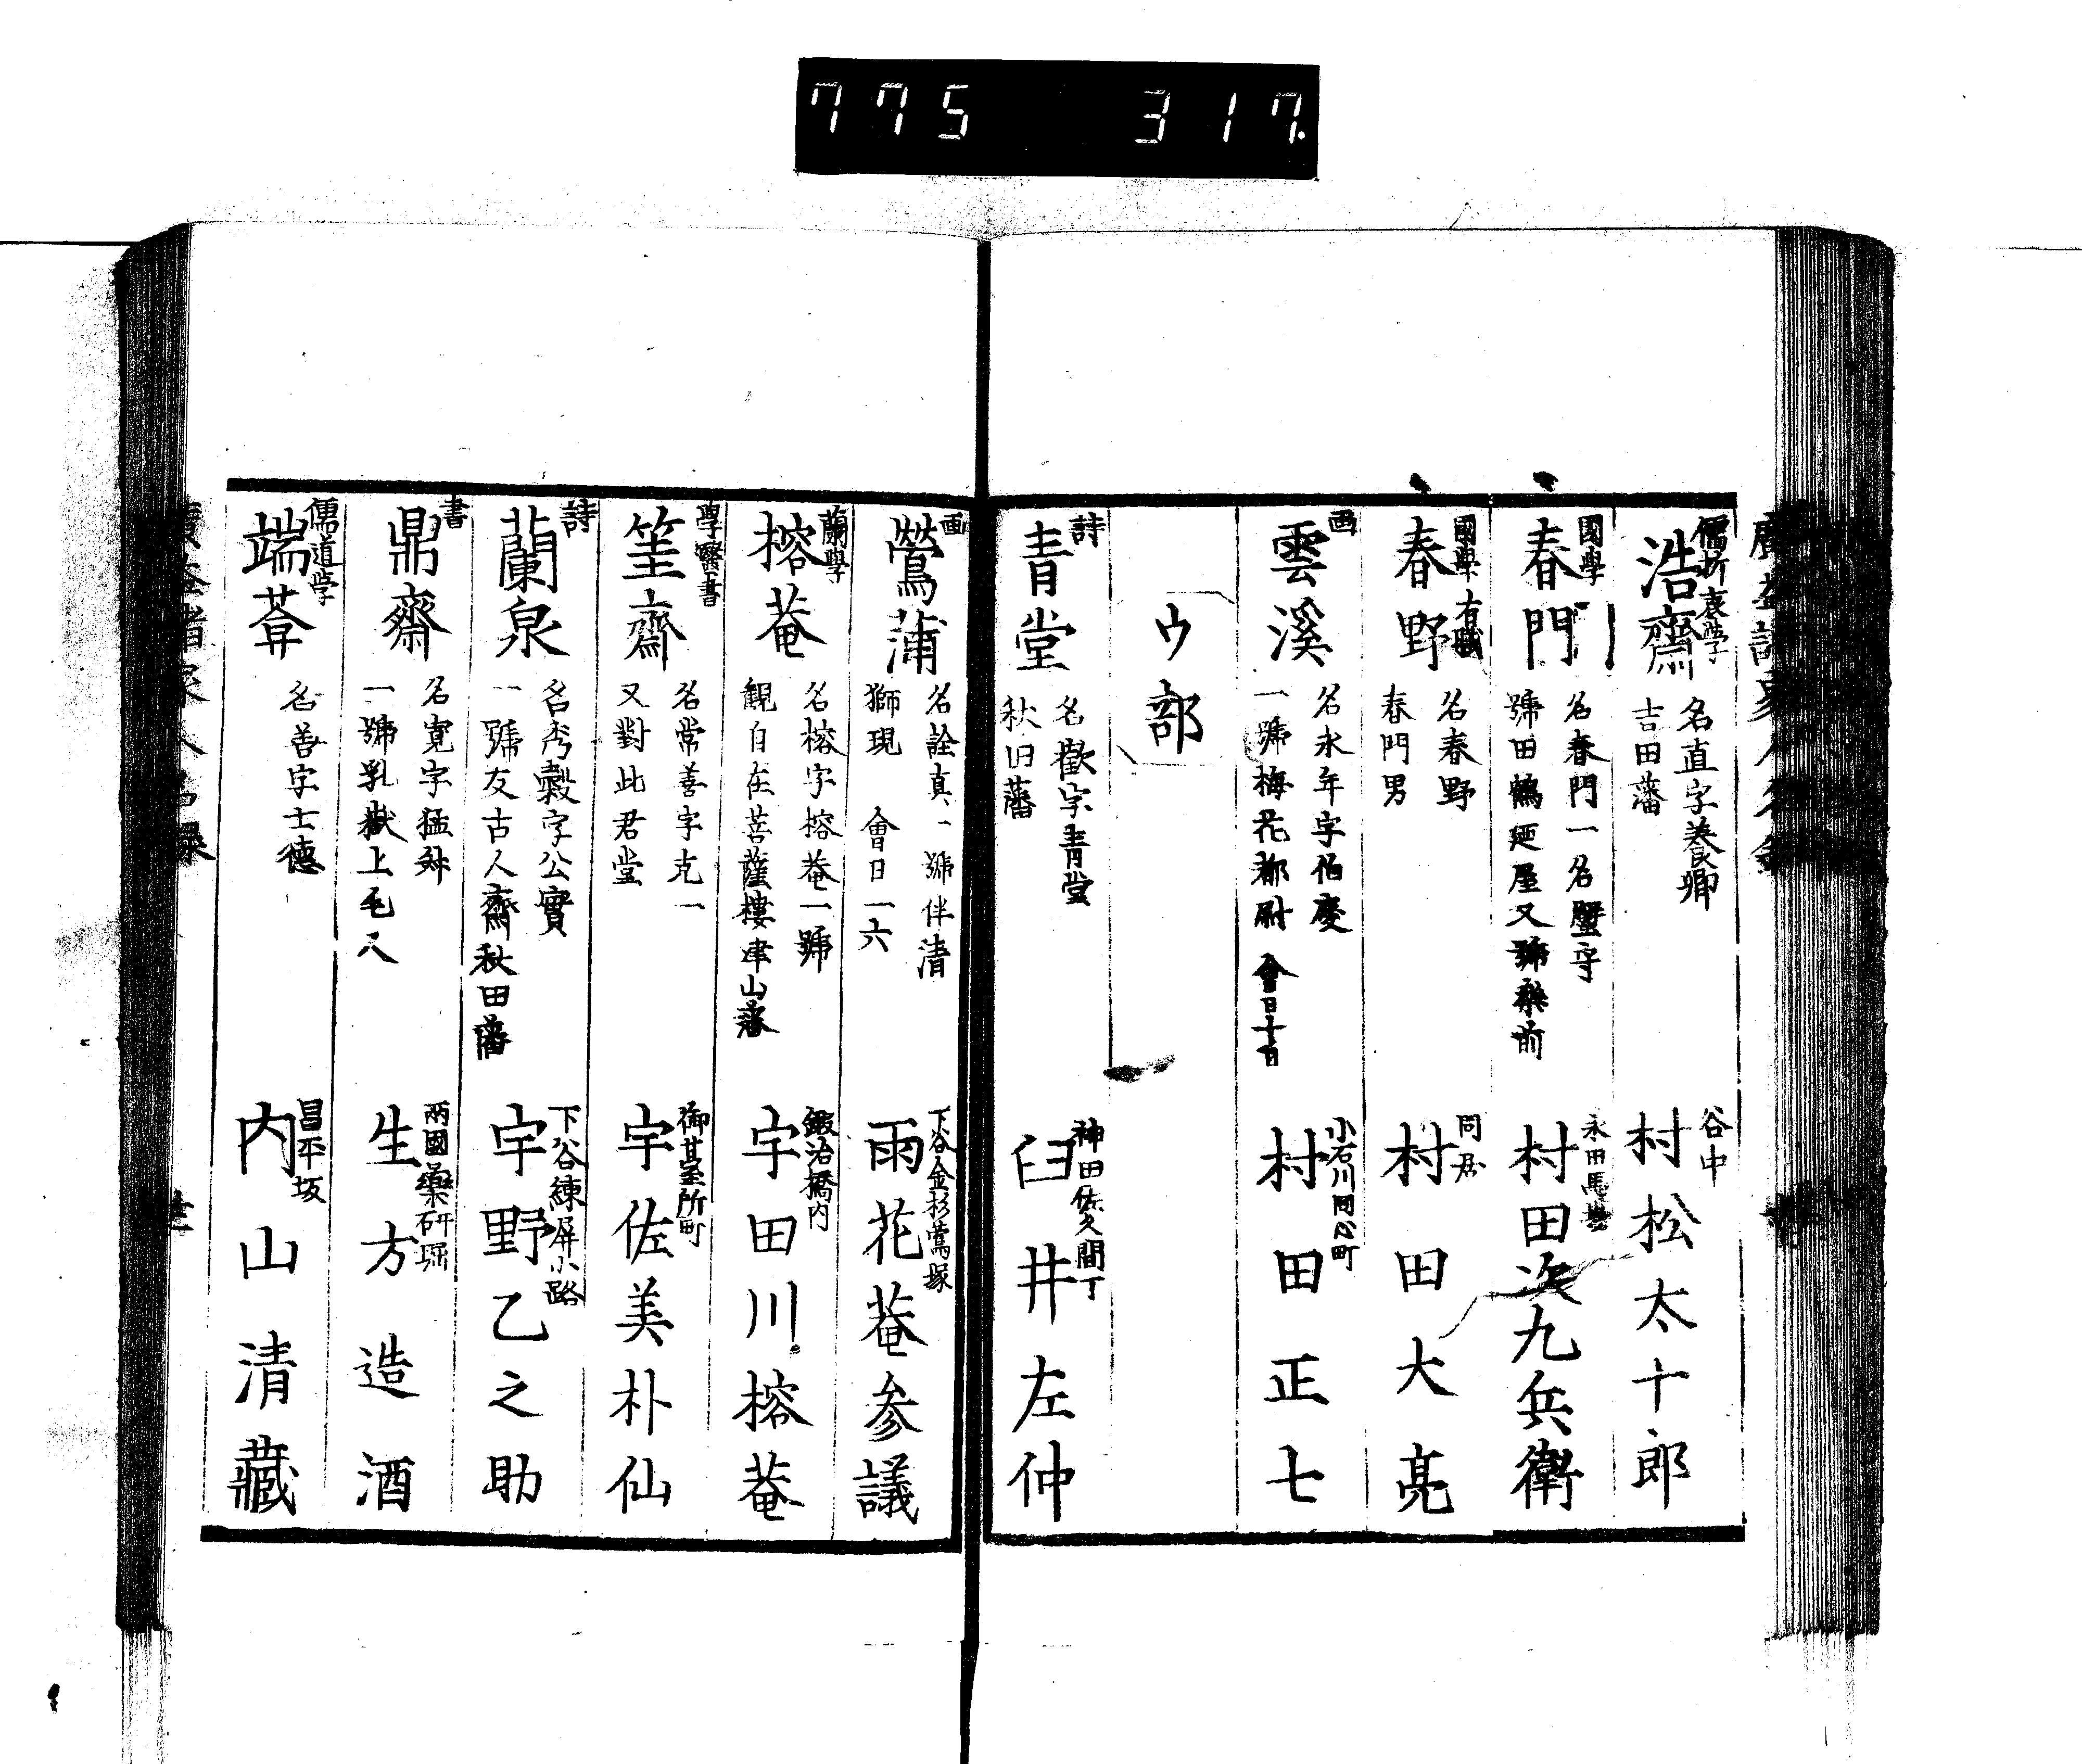 775 317
儒折衷学
浩齋
名直字養卿
吉田藩
谷中
村松太十郎
國學
春門
名春門一名蟹守
號田鶴廼屋又號楽前
永田馬塲
村田次九兵衛
國學 有職
春野
名春野
春門男
同居
村田大亮
画
雲溪
名永年字伯慶
一號梅花都尉 會日十日
小石川同心町
村田正七
ウ部
詩
青堂
名歡字青堂
秋旧藩
神田佐久間丁
臼井左仲
画
鶯蒲
名詮真一號伴清
獅現 會日一六
下谷金杉鶯塚
雨花菴参議
蘭學
榕菴
名榕字榕菴一號
觀自在菩薩樓津山藩
鍛治橋内
宇田川榕菴
學醫書
篁齋
名常善字克一
又對此君堂
御臺所町
宇佐美朴仙
詩
蘭泉
名秀穀字公實
一號友古人齋秋田藩
下谷練屏小路
宇野乙之助
書
鼎齋
名寛字猛升
一號乳嶽上毛人
兩國藥研堀
生方造酒
儒道学
端菴
名善字士德
昌平坂
内山清藏